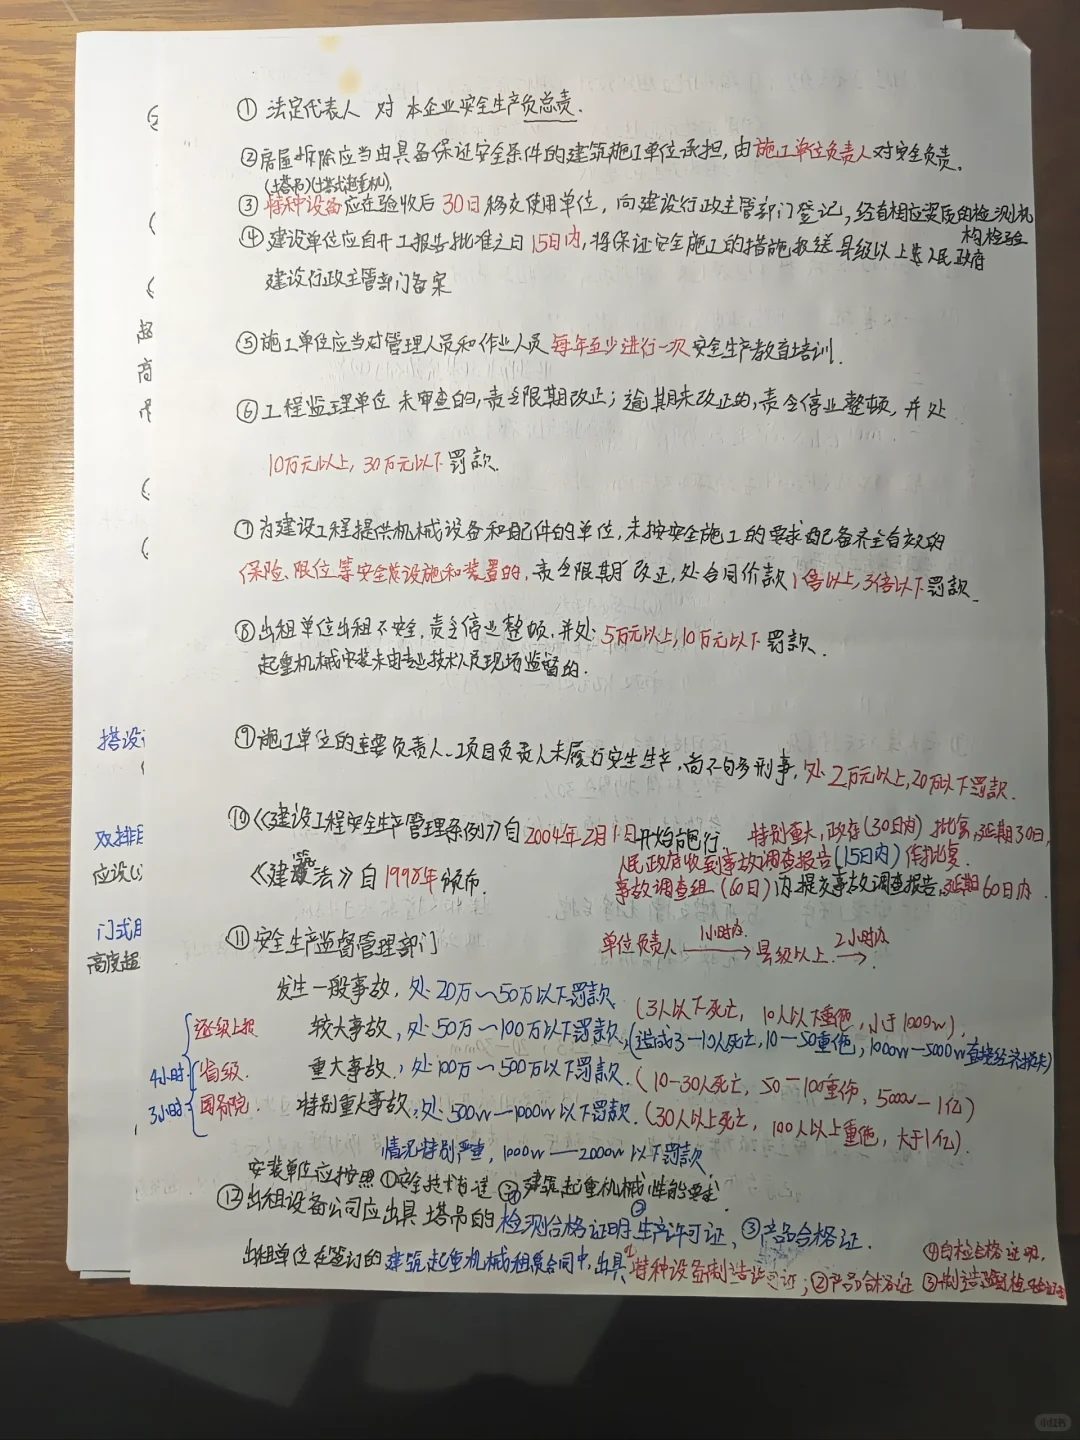 ① 法定代表人 对 本企业安全生产负总责.
②房屋拆除应当由具备保证安全条件的建筑施工单位承担,由施工单位负责人对安全负责.
(塔吊)(塔式起重机),
③ 特种设备应在验收后30日移交使用单位,向建设行政主管部门登记,经有相应资质的检测机
构检验
④建设单位应自开工报告批准之日15日内,将保证安全施工的措施报送县级以上人民政府
建设行政主管部门备案
⑤施工单位应当对管理人员和作业人员每年至少进行一次安全生产教育培训.
⑥ 工程监理单位 未审查的,责令限期改正;逾期未改正的,责令停业整顿,并处
10万元以上,30万元以下罚款.
⑦为建设工程提供机械设备和配件的单位,未按安全施工的要求配备齐全有效的
保险、限位等安全设施和装置的,责令限期改正,处合同价款1倍以上,3倍以下罚款.
⑧出租单位出租不安全,责令停业整顿,并处:5万元以上,10万元以下罚款.
起重机械安装未由专业技术人员现场监督的.
搭设
⑨施工单位的主要负责人、项目负责人未履行安生生产,尚不够刑事,处2万元以上,20万以下罚款.
⑩《建设工程安全生产管理条例》自2004年2月1日开始施行.
特别重大,政府(30日内)批复,延期30日,
人民政府收到事故调查报告(15日内)作批复.
《建筑法》自1998年颁布.
事故调查组(60日)内提交事故调查报告,延期60日内.
双排
应设
门式
高度超
⑪安全生产监督管理部门
单位负责人 1小时内 县级以上 2小时内
发生一般事故,处:20万—50万以下罚款
(3人以下死亡,10人以下重伤,小于1000w).
逐级上报
较大事故,处:50万—100万以下罚款,(造成3-10人死亡,10-50重伤,1000w-5000w直接经济损失)
4小时 省级.
重大事故,处:100万—500万以下罚款.(10-30人死亡,50-100重伤,5000w-1亿)
3小时 国务院.
特别重大事故,处:500w—1000w以下罚款.(30人以上死亡,100人以上重伤,大于1亿).
情况特别严重,1000w—2000w以下罚款.
安装单位应按照①安全技术 ②建筑起重机械性能要求
⑫出租设备公司应出具塔吊的检测合格证明,②生产许可证,③产品合格证.
出租单位在签订的建筑起重机械租赁合同中,出具①特种设备制造许可证;②产品合格证
④自检合格证明.